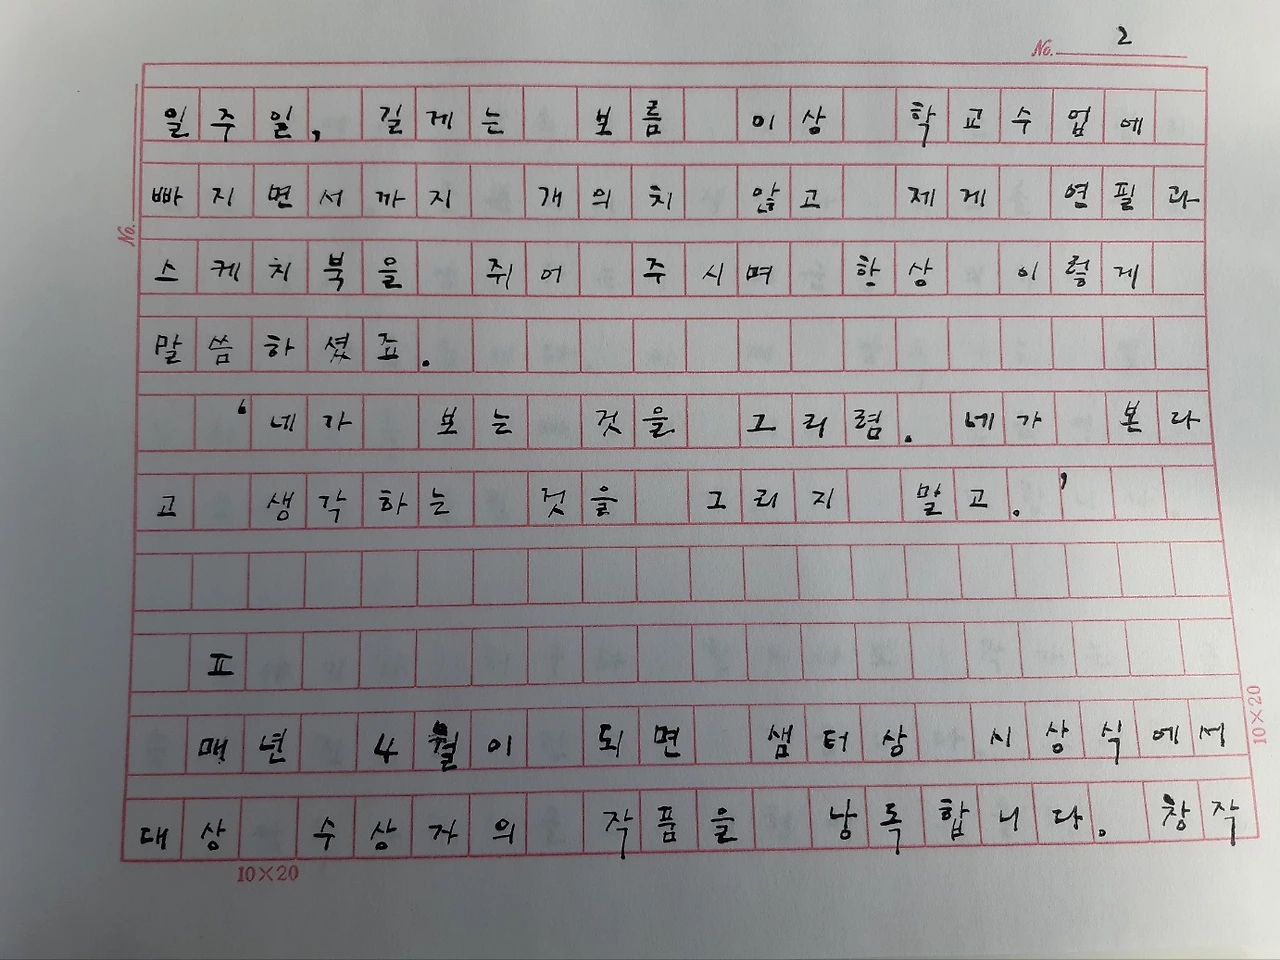 No. 2
일주일, 길게는 보름 이상 학교수업에
빠지면서까지 개의치 않고 제게 연필과
스케치북을 쥐어 주시며 항상 이렇게
말씀하셨죠.
‘네가 보는 것을 그리렴. 네가 본다
고 생각하는 것을 그리지 말고.’
Ⅱ
매년 4월이 되면 샘터상 시상식에서
대상 수상자의 작품을 낭독합니다. 창작
No.
10×20
10×20